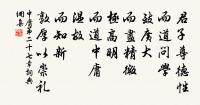 君子尊德性
而道問學
致廣大
而盡精微
極高明
而道中庸
溫故
而知新
敦厚以崇禮
中庸第二十七章詞典
網集